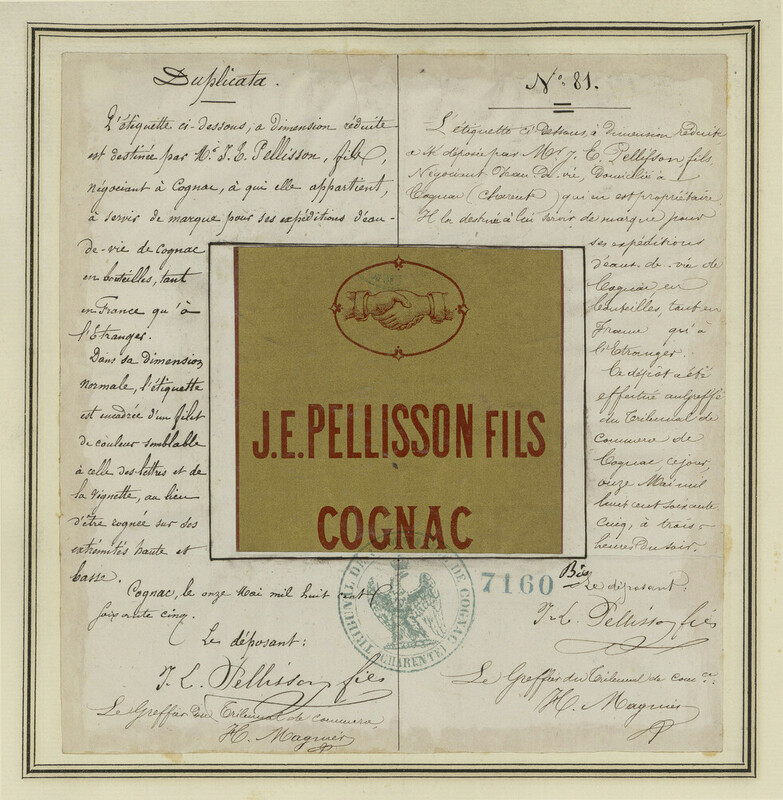 Duplicata.
L'étiquette ci-dessous, a dimension réduite
est destinée par Mr. J. E. Pellisson, fils,
négociant à Cognac, à qui elle appartient,
à servir de marque pour ses expéditions d'eau-
de-vie de Cognac
en bouteilles, tant
en France qu'à
l'Etranger.
Dans sa dimension
normale, l'étiquette
est encadrée d'un filet
de couleur semblable
à celle des lettres et de
la vignette, au lieu
d'être rognée sur ses
extrémités haute et
basse.
Cognac, le onze Mai mil huit cent
soixante cinq.
Le déposant:
J. E. Pellisson fils
Le Greffier du Tribunal de commerce,
H. Magnier
No. 81.
L'étiquette ci Dessous, à dimension réduite
a été déposée par Mr J. E. Pellisson, fils
Négociant d'eau-de-vie, Domicilié à
Cognac (Charente) qui en est propriétaire.
Il la destine à lui servir de marque pour
ses expéditions
d'eaux-de-vie de
Cognac, en
bouteilles, tant en
France qu'à
l'Etranger.
Ce dépôt a été
effectué au greffe
du Tribunal de
Commerce de
Cognac, ce jour,
onze Mai mil
huit cent soixante
cinq, à trois
heures du soir.
Le déposant:
J. E. Pellisson fils
Le Greffier du Tribunal de comce.
H. Magnier
J.E. PELLISSON FILS
COGNAC
7160 Bis
TRIBUNAL DE COGNAC
(CHARENTE)